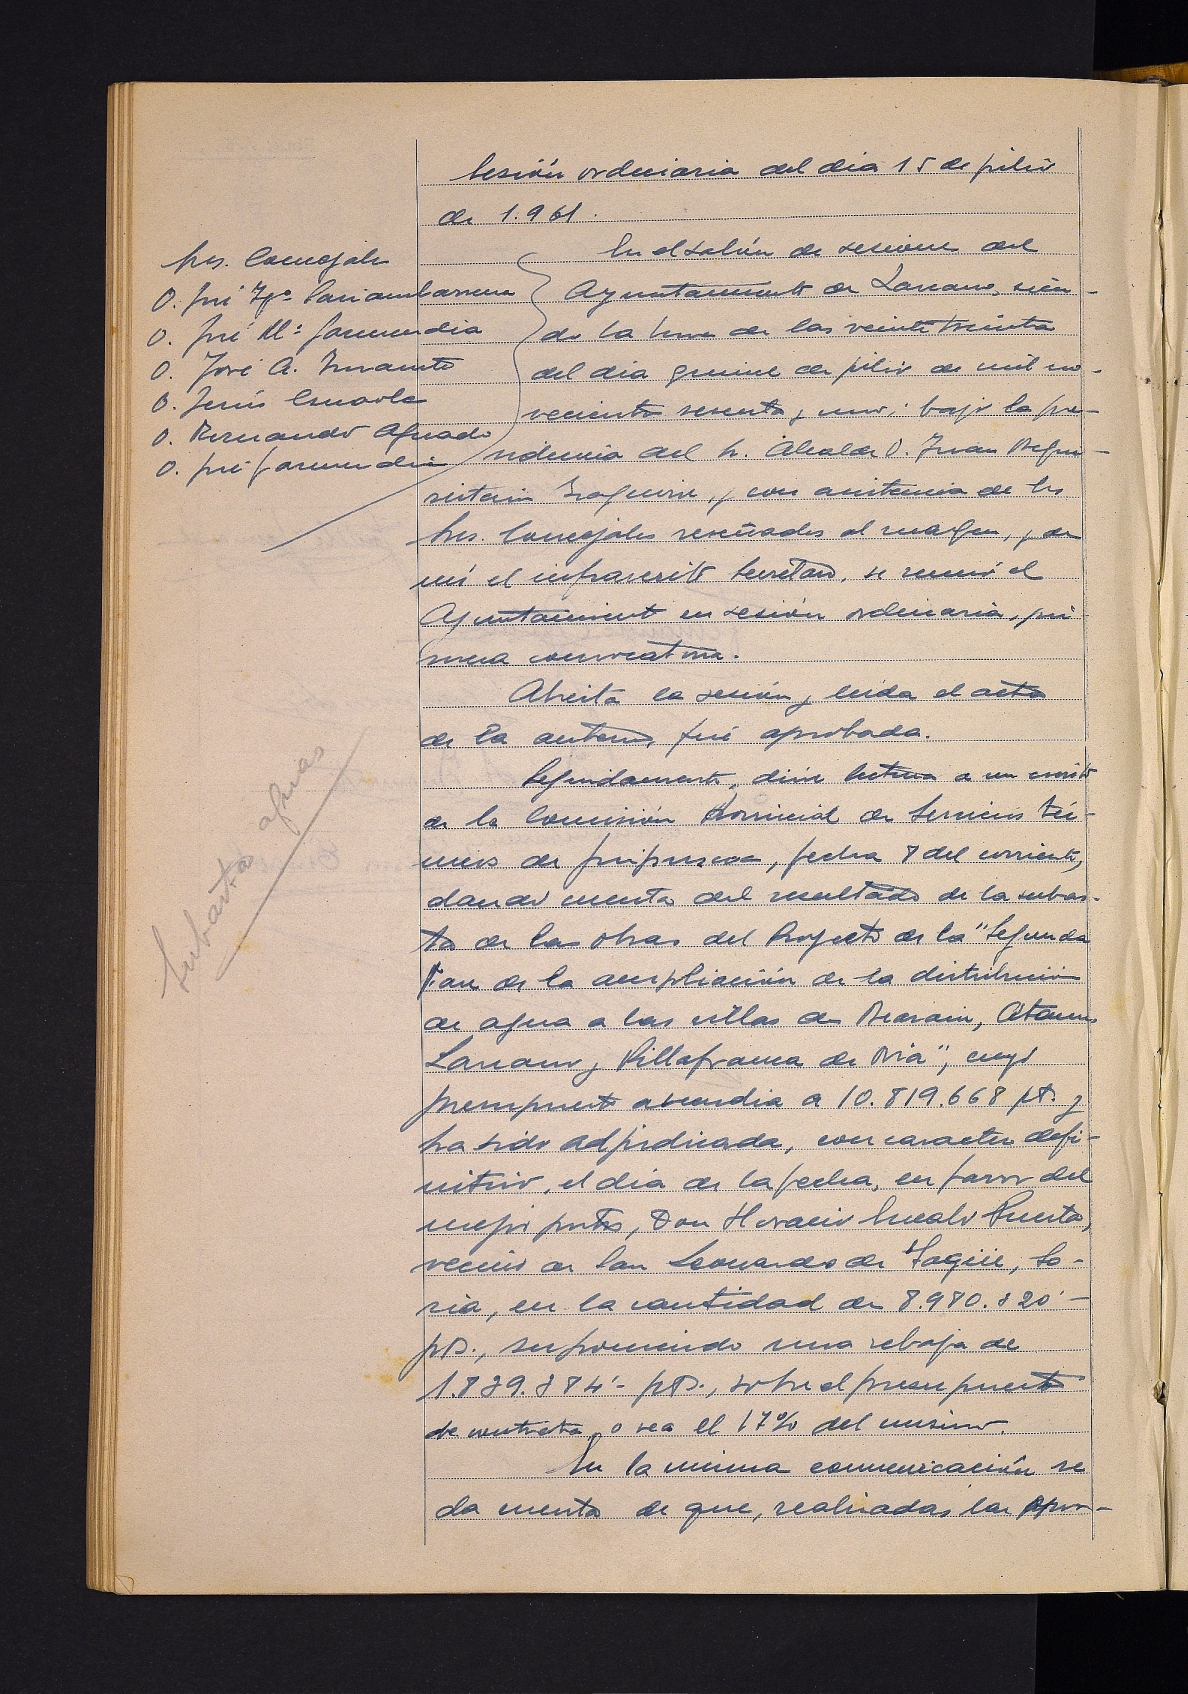 Sesión ordinaria del dia 15 de julio
de 1.961.
Sres. Concejales
D. José Igº Lariambarrena
D. José Mª Garmendia
D. José A. Insausti
D. Jesús Esnaola
D. Bernardo Aguado
D. José Garmendia
En el salón de sesiones del
Ayuntamiento de Lazcano, sien-
do la hora de las veinte treinta
del dia quince de julio de mil no-
vecientos sesenta y uno, bajo la pre-
sidencia del Sr. Alcalde D. Juan Begui-
ristain Izaguirre, y con asistencia de los
Sres. Concejales reseñados al margen, y de
mí el infrascrito Secretario, se reunió el
Ayuntamiento en sesión ordinaria, pri-
mera convocatoria.
Abierta la sesión y leida el acta
de la anterior, fué aprobada.
Subasta aguas
Segundamente, dióse lectura a un escrito
de la Comisión Provincial de Servicios Téc-
nicos de Guipuzcoa, fecha 8 del corriente,
dando cuenta del resultado de la subas-
ta de las obras del Proyecto de la "Segunda
Fase de la ampliación de la distribución
de agua a las villas de Beasain, Ataun,
Lazcano y Villafranca de Oria", cuyo
presupuesto ascendia a 10.819.668 pts. y
ha sido adjudicada, con caracter defi-
nitivo, el dia de la fecha, en favor del
mejor postor, Don Horacio Puerta,
vecino de San Leonardo de Yagüe, So-
ria, en la cantidad de 8.980.320'-
pts., suponiendo una rebaja de
1.839.384'- pts., sobre el presupuesto
de contrata, o sea el 17% del mismo.
En la misma comunicación se
da cuenta de que, realizadas las apor-